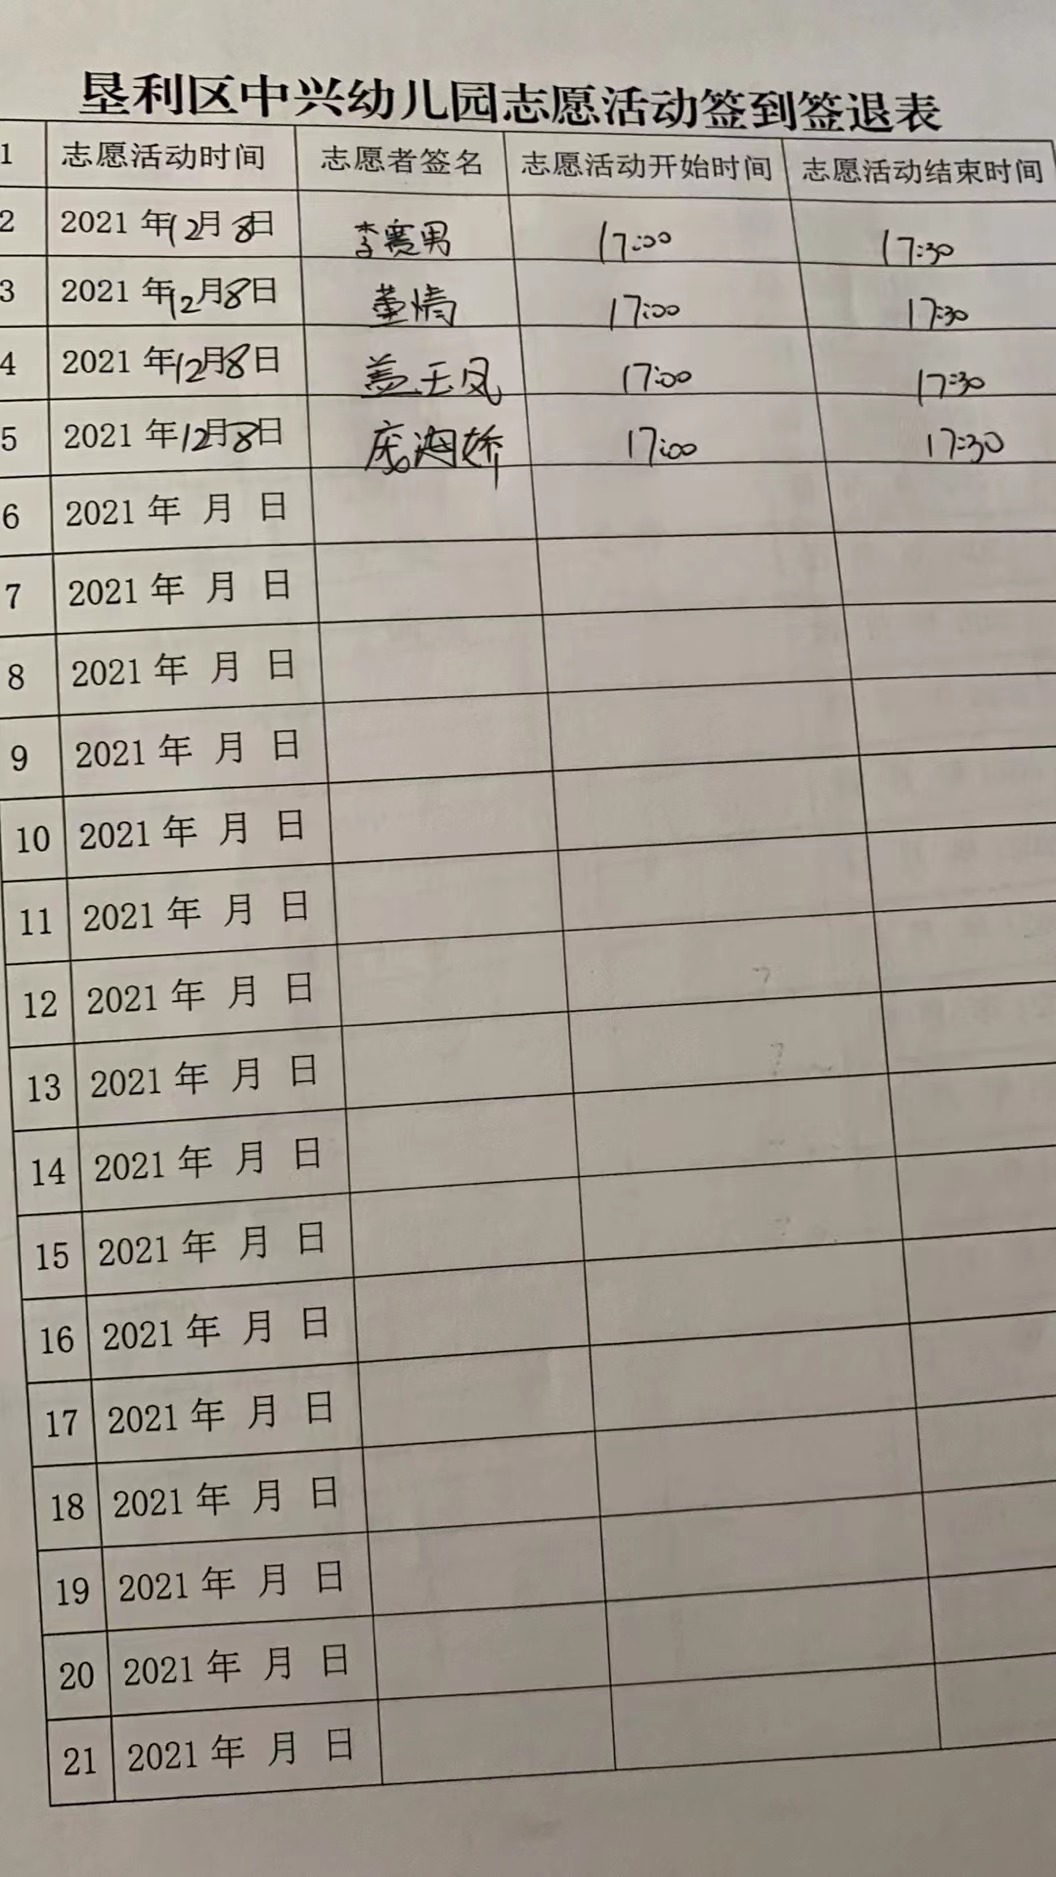 垦利区中兴幼儿园志愿活动签到签退表
1 志愿活动时间 志愿者签名 志愿活动开始时间 志愿活动结束时间
2 2021 年12月8日 李赛男 17:00 17:30
3 2021 年12月8日 董倩 17:00 17:30
4 2021 年12月8日 盖玉凤 17:00 17:30
5 2021 年12月8日 庞海娇 17:00 17:30
6 2021 年 月 日
7 2021 年 月 日
8 2021 年 月 日
9 2021 年 月 日
10 2021 年 月 日
11 2021 年 月 日
12 2021 年 月 日
13 2021 年 月 日
14 2021 年 月 日
15 2021 年 月 日
16 2021 年 月 日
17 2021 年 月 日
18 2021 年 月 日
19 2021 年 月 日
20 2021 年 月 日
21 2021 年 月 日